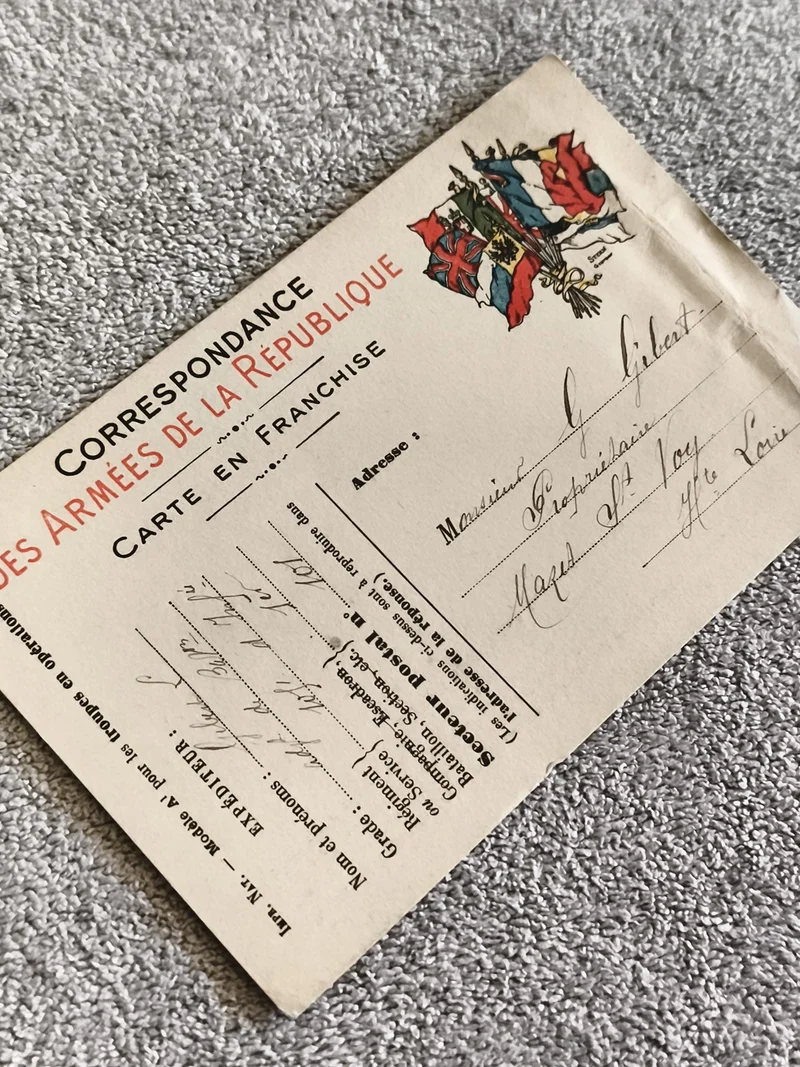 CORRESPONDANCE
DES ARMÉES DE LA RÉPUBLIQUE
CARTE EN FRANCHISE
STERN
Adresse :
Monsieur G Gibert
Propriétaire
Mazet St Voy
Hte Loire
Impr. Nat. — Modèle A1 pour les troupes en opérations
EXPÉDITEUR :
Nom et prénoms :
Grade :
Régiment
ou Service
Compagnie, Escadron,
Bataillon, Section, etc.
Secteur postal n° 101
(Les indications ci-dessus sont à reproduire dans
l'adresse de la réponse.)